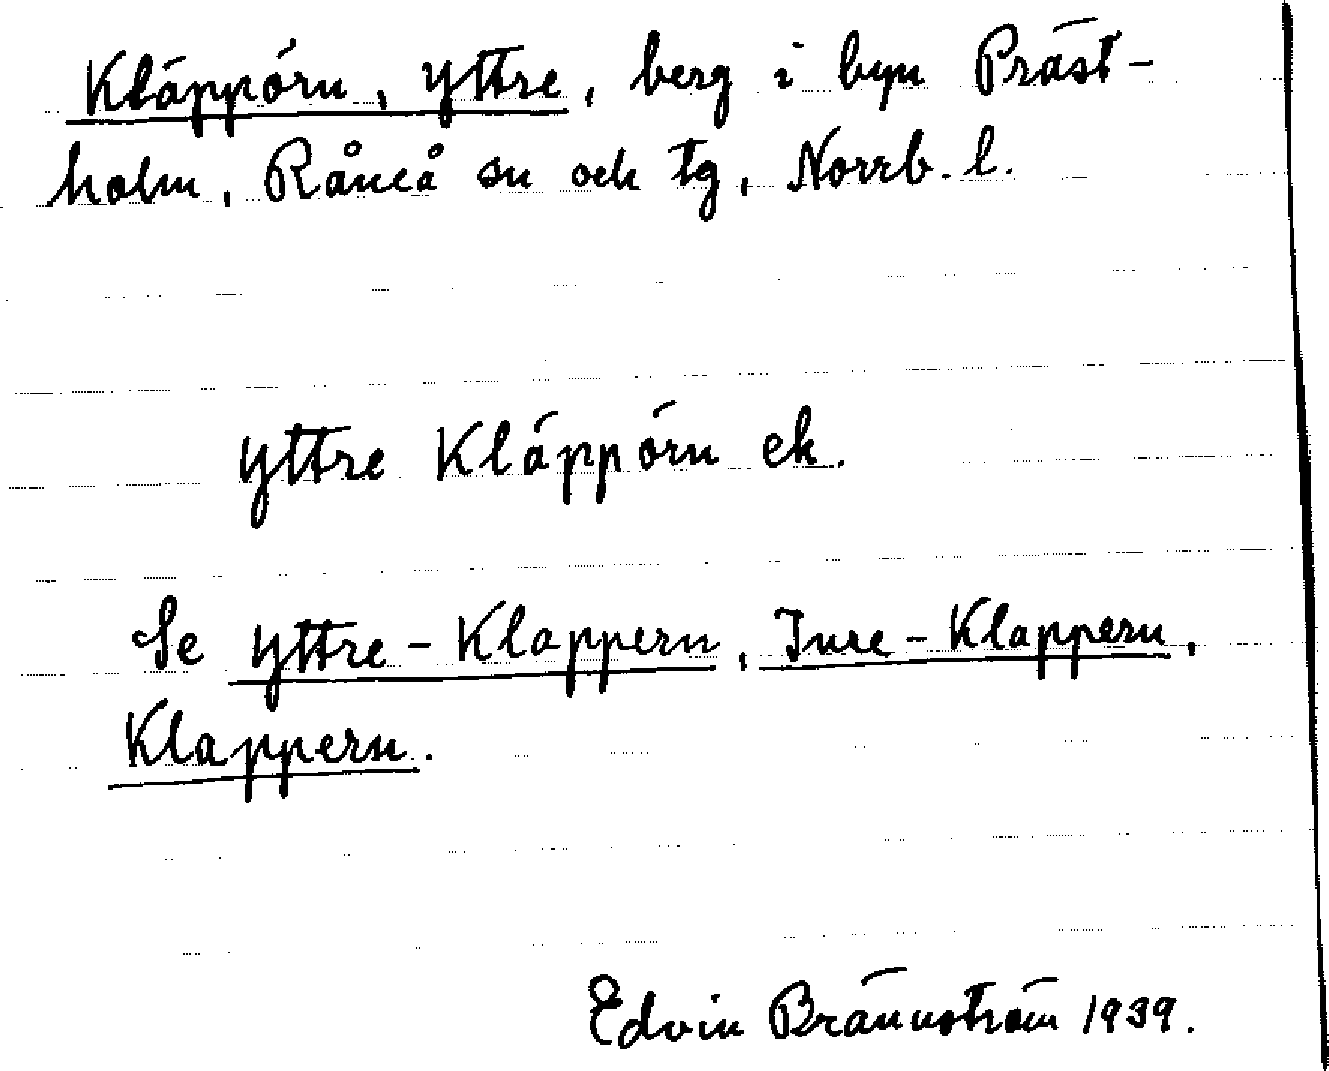 Kläppörn, Yttre, berg i byn Präst-
holm, Råneå sn och tg, Norrb. l.
Yttre Kläppörn ek.
Se Yttre-Klappern, Inre-Klappern,
Klappern.
Edvin Brännström 1939.